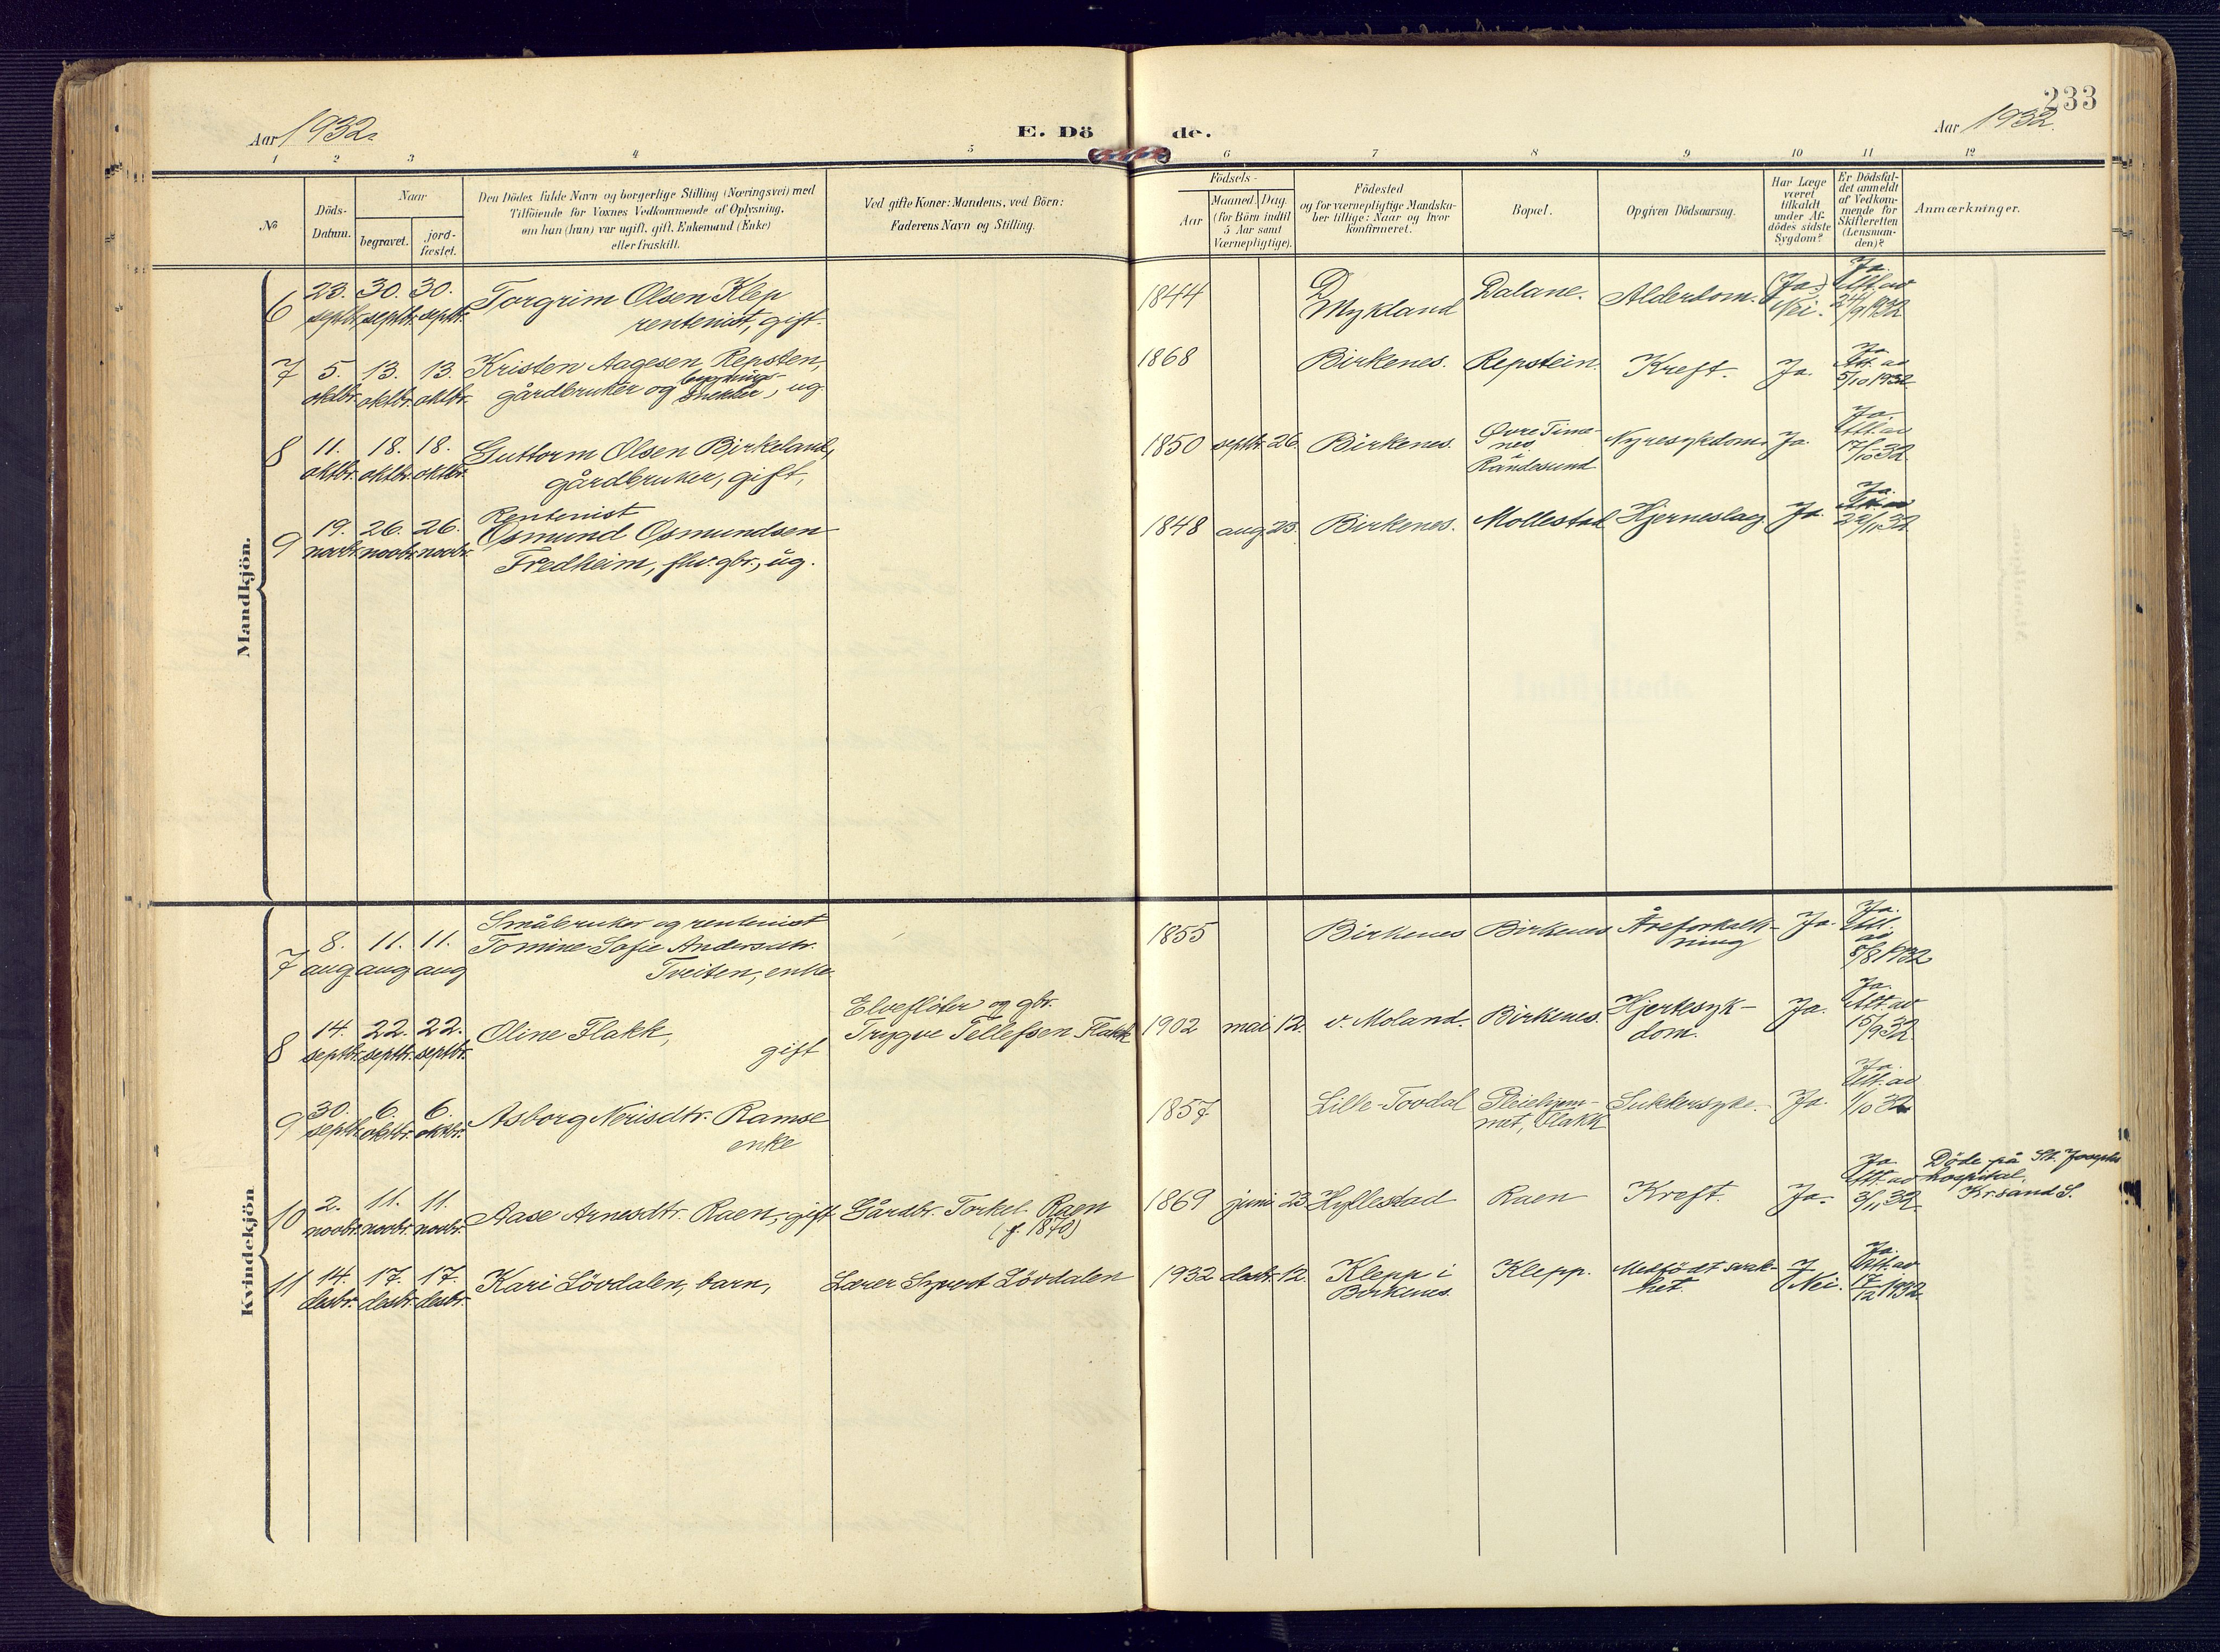 233
Aar 1932.
E. Döde.
Aar 1932.
1 2 3 4 5 6 7 8 9 10 11 12
№
Döds-
Datum.
Naar
begravet.
jord-
fæstet.
Den Dödes fulde Navn og borgerlige Stilling (Næringsvei) med
Tilföiende for Voxnes Vedkommende af Oplysning,
om han (hun) var ugift, gift, Enkemand (Enke)
eller fraskilt.
Ved gifte Koner: Mandens, ved Börn:
Faderens Navn og Stilling.
Födsels-
Aar
Maaned. Dag.
(for Börn indtil
5 Aar samt
Værnepligtige).
Födested
og for værnepligtige Mandska-
ber tillige: Naar og hvor
konfirmeret.
Bopæl.
Opgiven Dödsaarsag.
Har Læge
været
tilkaldt
under Af-
dödes sidste
Sygdom?
Er Dödsfal-
det anmeldt
af Vedkom-
mende for
Skifteretten
(Lensman-
den)?
Anmærkninger.
Mandkjön.
6 23. septbr. 30. septbr. 30. septbr. Torgrim Olsen Klep
rentenist, gift. 1844 Mykland Dalane. Alderdom. (Ja) Nei. Ja. Att. av 24/9 1932
7 5. oktbr. 13. oktbr. 13. oktbr. Kristen Aagesen Repsten,
gårdbruker og bygnings-
snekker, ug. 1868 Birkenes. Repstein. Kreft. Ja. Ja. Att. av 5/10 1932
8 11. oktbr. 18. oktbr. 18. oktbr. Guttorm Olsen Birkeland,
gårdbruker, gift, 1850 septbr. 26. Birkenes. Øvre Time-
nes
Randesund Nyresykdom. Ja. Ja. Att. av 17/10 32
9 19. novbr. 26. novbr. 26. novbr. Rentenist
Osmund Osmundsen
Fredheim, fhv. gbr., ug. 1848 aug. 23. Birkenes. Mollestad Hjerneslag Ja. Ja. Att. av 22/11 32
Kvindekjön
7 8. aug 11. aug 11. aug Småbruker og rentenist
Tomine Sofie Andersdtr.
Tveiten, enke 1855 Birkenes Birkenes Åreforkalk-
ning Ja. Ja. Att. av 8/8 1932
8 14. septbr. 22. septbr. 22. septbr. Oline Flakk,
gift Elvefløter og gbr.
Trygve Tellefsen Flakk 1902 mai 12. v. Moland. Birkenes. Hjertesyk-
dom. Ja. Ja. Att. av 15/9 32
9 30. septbr. 6. oktbr. 6. oktbr. Asborg Nerisdtr. Ramse
enke 1857 Lille-Tovdal Pleiehjem-
met, Flakk Sukkersyke. Ja. Ja. Att. av 1/10 32
10 2. novbr. 11. novbr. 11. novbr. Aase Arnesdtr. Raen, gift Gårdbr. Torkel Raen
(f. 1870) 1869 juni 23. Hyllestad Raen Kreft. Ja. Ja Att. av 3/11 32 Döde på St. Josephs
hospital,
Kr.sand S.
11 14. desbr. 17. desbr. 17. desbr. Kari Lövdalen, barn, Lærer Syvert Lövdalen 1932 desbr. 12. Klepp i
Birkenes. Klepp. Medfödt svak-
het. Nei. Ja. Att. av 17/12 1932